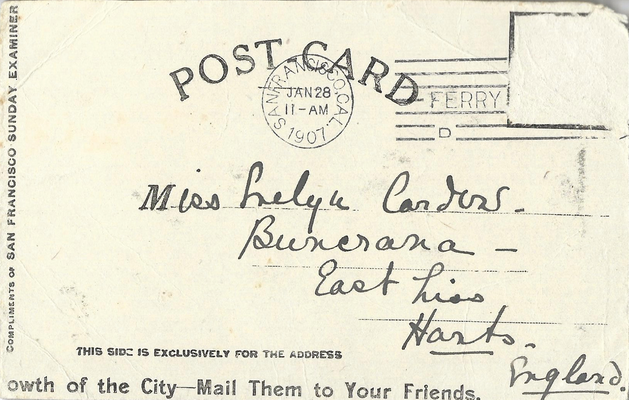 COMPLIMENTS OF SAN FRANCISCO SUNDAY EXAMINER
POST CARD
SAN FRANCISCO, CAL.
JAN 28
11-AM
1907
FERRY
D
Miss Evelyn
Buncrana —
East Liss
Hants.
England.
THIS SIDE IS EXCLUSIVELY FOR THE ADDRESS
owth of the City—Mail Them to Your Friends.